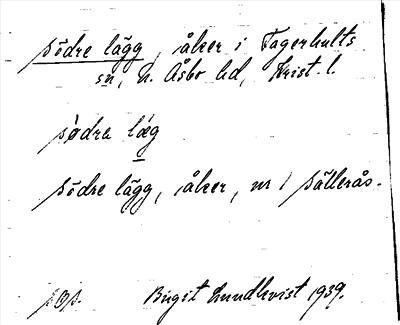 södre lägg, åker i Fagerhults
sn, N. Åsbo hd, Krist. l.
södra læg
södre lägg, åker, nr 1 Sällerås.
Birgit Lundkvist 1939.